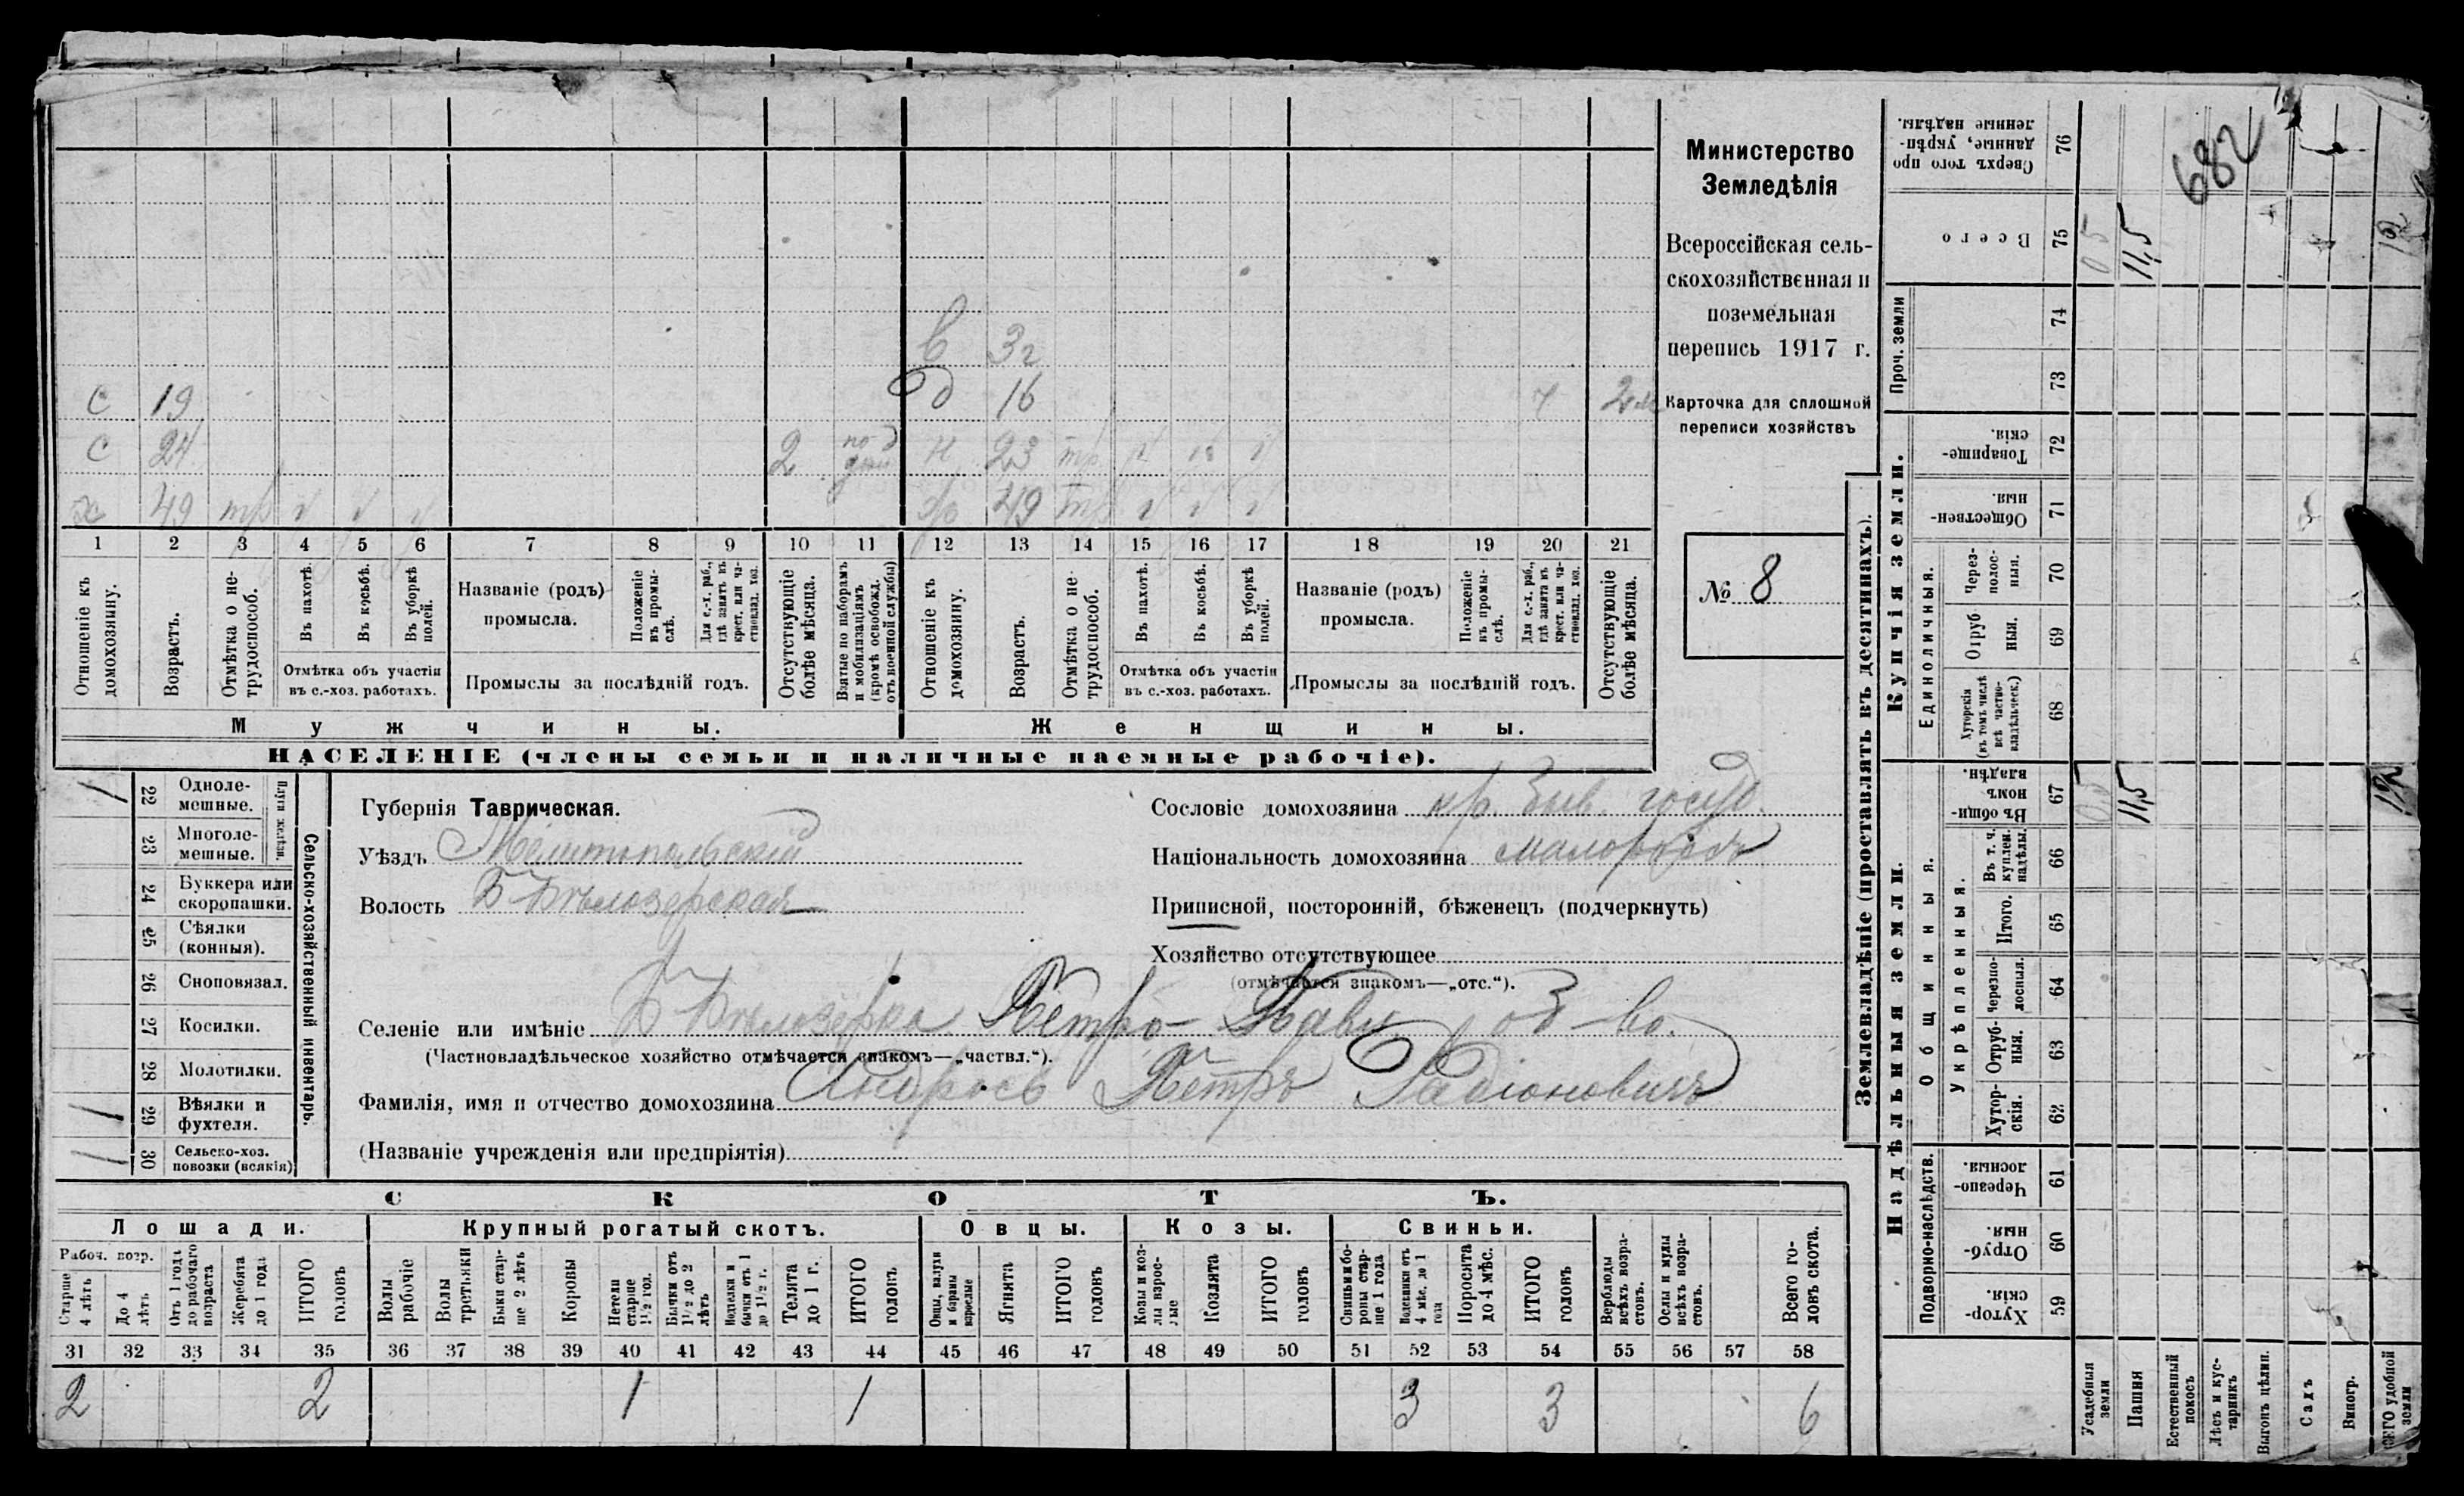 в 3г
с 19 д 16 ч 2 м
с 24 2 н 23 тр
х 49 тр ѵ ѵ ѵ 49 тр ѵ ѵ ѵ
1 2 3 4 5 6 7 8 9 10 11 12 13 14 15 16 17 18 19 20 21
Отношеніе къ домохозяину.
Возрастъ.
Отмѣтка о нетрудоспособ.
Въ пахотѣ.
Въ косьбѣ.
Въ уборкѣ полей.
Отмѣтка объ участіи въ с.-хоз. работахъ.
Названіе (родъ) промысла.
Положеніе въ промыслѣ.
Для с.-х. раб., гдѣ занятъ въ крест. или частновлад. хоз.
Промыслы за послѣдній годъ.
Отсутствующіе болѣе мѣсяца.
Взятые по наборамъ и мобилизаціямъ (кромѣ освобожд. отъ военной службы)
Отношеніе къ домохозяину.
Возрастъ.
Отмѣтка о нетрудоспособ.
Въ пахотѣ.
Въ косьбѣ.
Въ уборкѣ полей.
Отмѣтка объ участіи въ с.-хоз. работахъ.
Названіе (родъ) промысла.
Положеніе въ промыслѣ.
Для с.-х. раб., гдѣ занята въ крест. или частновлад. хоз.
Промыслы за послѣдній годъ.
Отсутствующіе болѣе мѣсяца.
Мужчины. Женщины.
НАСЕЛЕНІЕ (члены семьи и наличные наемные рабочіе).
Министерство
Земледѣлія
Всероссійская сель-
скохозяйственная и
поземельная
перепись 1917 г.
Карточка для сплошной
переписи хозяйствъ
№ 8
Сельско-хозяйственный инвентарь.
Плуги желѣзн.
22 Одноле-мешные. 1
23 Многоле-мешные.
24 Буккера или скоропашки.
25 Сѣялки (конныя).
26 Сноповязал.
27 Косилки.
28 Молотилки.
29 Вѣялки и фухтеля. 1
30 Сельско-хоз. повозки (всякія) 1
Губернія Таврическая.
Уѣздъ Мелитопольскій
Волость Б Бѣлозерская
Сословіе домохозяина кр. быв. госуд.
Національность домохозяина малороссъ
Приписной, посторонній, бѣженецъ (подчеркнуть)
Хозяйство отсутствующее
(отмѣчается знакомъ—„отс.“).
Селеніе или имѣніе Б Бѣлозерка Петро-Павл об-во.
(Частновладѣльческое хозяйство отмѣчается знакомъ—„частвл.“).
Фамилія, имя и отчество домохозяина Андросъ Петръ Радіоновичъ
(Названіе учрежденія или предпріятія)
СКОТЪ.
Лошади. Крупный рогатый скотъ. Овцы. Козы. Свиньи.
Рабоч. возр.
Старше 4 лѣтъ
До 4 лѣтъ
Отъ 1 года до рабочаго возраста
Жеребята до 1 года
ИТОГО головъ
Волы рабочіе
Волы третьяки
Быки старше 2 лѣтъ
Коровы
Нетели старше 1½ год.
Бычки отъ 1½ до 2 лѣтъ
Бычки отъ 1 до 1½ г.
Телята до 1 г.
ИТОГО головъ
Овцы, валухи и бараны взрослые
Ягнята
ИТОГО головъ
Козы и козлы взрослые
Козлята
ИТОГО головъ
Свиньи и бороны старше 1 года
Подсвинки отъ 4 мѣс. до 1 года
Поросята до 4 мѣс.
ИТОГО головъ
Верблюды всѣхъ возрастовъ.
Ослы и мулы всѣхъ возрастовъ.
Всего головъ скота.
31 32 33 34 35 36 37 38 39 40 41 42 43 44 45 46 47 48 49 50 51 52 53 54 55 56 57 58
2 2 1 1 3 3 6
Землевладѣніе (проставлять въ десятинахъ).
Надѣльныя земли. Купчія земли. Проч. земли
Подворно-наслѣдств. Общинныя. Укрѣпленныя. Единоличныя.
Хуторскія. 59
Отрубныя. 60
Черезполосныя. 61
Хуторскія. 62
Отрубныя. 63
Черезполосныя. 64
Итого. 65
Въ т. ч. куплен. надѣлы. 66
Въ общинномъ владѣн. 67
Хуторскія (въ томъ числѣ всѣ частновладѣльческ.) 68
Отрубныя. 69
Черезполосныя. 70
Общественныя. 71
Товарищескія. 72
73
74
Всего 75
Сверхъ того проданные, укрѣпленные надѣлы. 76
Усадебныя земли 0,5 0,5
Пашня 11,5 11,5
Естественный покосъ
Лѣсъ и кустарникъ
Выгонъ цѣлин.
Садъ
Виногр.
ВСЕГО удобной земли 12 12
682